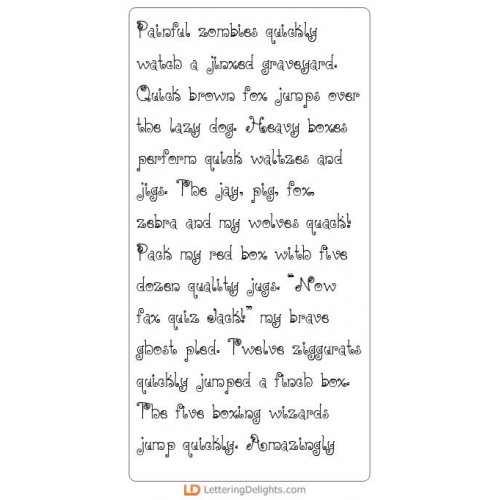 Painful zombies quickly
watch a jinxed graveyard.
Quick brown fox jumps over
the lazy dog. Heavy boxes
perform quick waltzes and
jigs. The jay, pig, fox,
zebra and my wolves quack!
Pack my red box with five
dozen quality jugs. “Now
fax quiz Jack!” my brave
ghost pled. Twelve ziggurats
quickly jumped a finch box.
The five boxing wizards
jump quickly. Amazingly
LD LetteringDelights.com